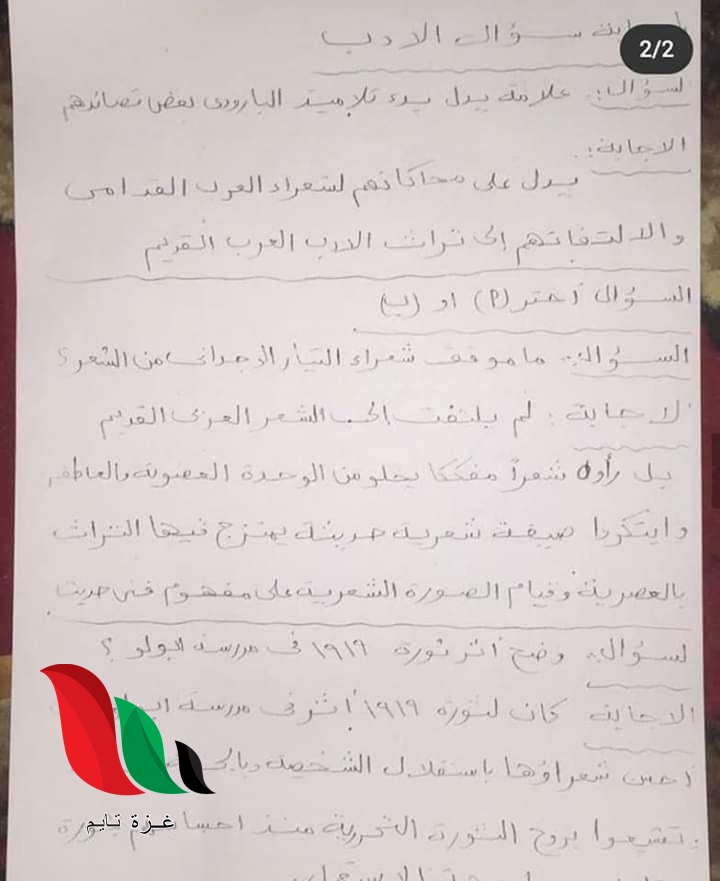 سؤال الادب
2/2
السؤال:. علامة يدل بدء تلاميذ البارودى بعض قصائدهم
الاجابة:.
يدل على محاكاتهم لشعراء العرب القدامى
والالتفاتهم إلى تراث الادب العرب القديم
السؤال أختر (P) او (ب)
السؤال:. ما موقف شعراء التيار الوجدانى من الشعر؟
لاجابة: لم يلتفت الى الشعر العربى القديم
بل رأوه شعراً مفككا يخلو من الوحدة العضوية والعاطفه
وابتكروا صيغة شعرية حديثة يمتزج فيها التراث
بالعصرية وقيام الصورة الشعرية على مفهوم فنى حديث
لسؤال:. وضح أثر ثورة ١٩١٩ فى مدرسة ابولو؟
الاجابة كان لثورة ١٩١٩ أثر فى مدرسة
أحس شعراؤها باستقلال الشخصية
وتشبعوا بروح الثورة التحررية منذ
غزة تايم